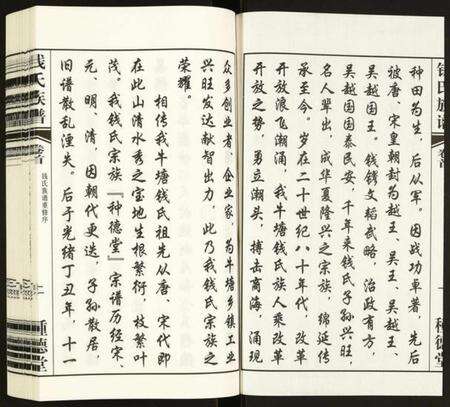 种田为生，后从军。因战功卓著，先后
被唐、宋皇朝封为越王、吴王、吴越王、
吴越国王。钱镠文韬武略，治政有方，
吴越国国泰民安，千年来钱氏子孙兴旺，
名人辈出，成华夏隆兴之宗族，绵延传
承至今。岁在二十世纪八十年代，改革
开放浪飞潮涌，我牛塘钱氏族人乘改革
开放之势，勇立潮头，搏击商海，涌现
钱氏族谱
种德堂
众多创业者、企业家，为牛塘乡镇工业
兴旺发达献智出力，此乃我钱氏宗族之
荣耀。
相传我牛塘钱氏祖先从唐、宋代即
在此山清水秀之宝地生根繁衍，枝繁叶
茂。我钱氏宗族『种德堂』宗谱历经宋、
元、明、清，因朝代更迭，子孙散居，
旧谱散乱湮失。后于光绪丁丑年，十一
钱氏族谱
卷首
钱氏族谱重修序
二
种德堂